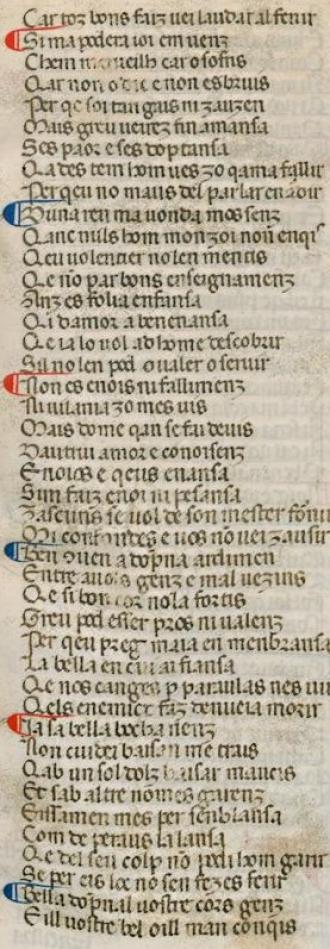 Car toz bons faiz uei laudar al fenir
Si ma podera ioi em uenz
Chem merueilh car o sofris
Qar non o dic e non esbruis
Per qe soi tan gaus ni zauzen
Mais greu ueirez fin amansa
Ses paor e ses doptansa
Qades tem hom ues zo qama fallir
Per qeu no maus del parlar enaoir
Duna ren ma uonda mos senz
Qanc nuls hom mon zoi non enqis
Qeu uolentier nolen mentis
Qe no par bons enseignamenz
Anz es folia enfansa
Qi damor a benenansa
Qe ia lo uol ad home descobrir
Sil no len pod o ualer o seruir
Non es enois ni fallimenz
Ni uilania zo mes uis
Mais dome qan se fai deuis
Dautrui amor e conoisenz
Enoios e qeus enansa
Sim faiz enoi ni pesansa
Zascuns se uol de son mester
Mi confondes e uos no uei zausir
Ben ouen a dopna ardimen
Entre auols genz e mal uezins
Qe si bon cor nola fortis
Greu pod esser pros ni ualenz
Per qeu preg maia en menbransa
La bella en cui ai fiansa
Qe nos cange p paraulas nes uir
Qels enemics faz denueia morir
Ia sa bella bocha rienz
Non cuidei baisan me trais
Qab un sol dolz baisar maucis
Et sab altre nomes garenz
Eissamen mes per senblansa
Com de peraus la lansa
Qe del seu colp no podi hom garir
Se per eis loc no sen fezes ferir
Bella dopnal uostre cors genz
Eill uostre bel oill man conqis